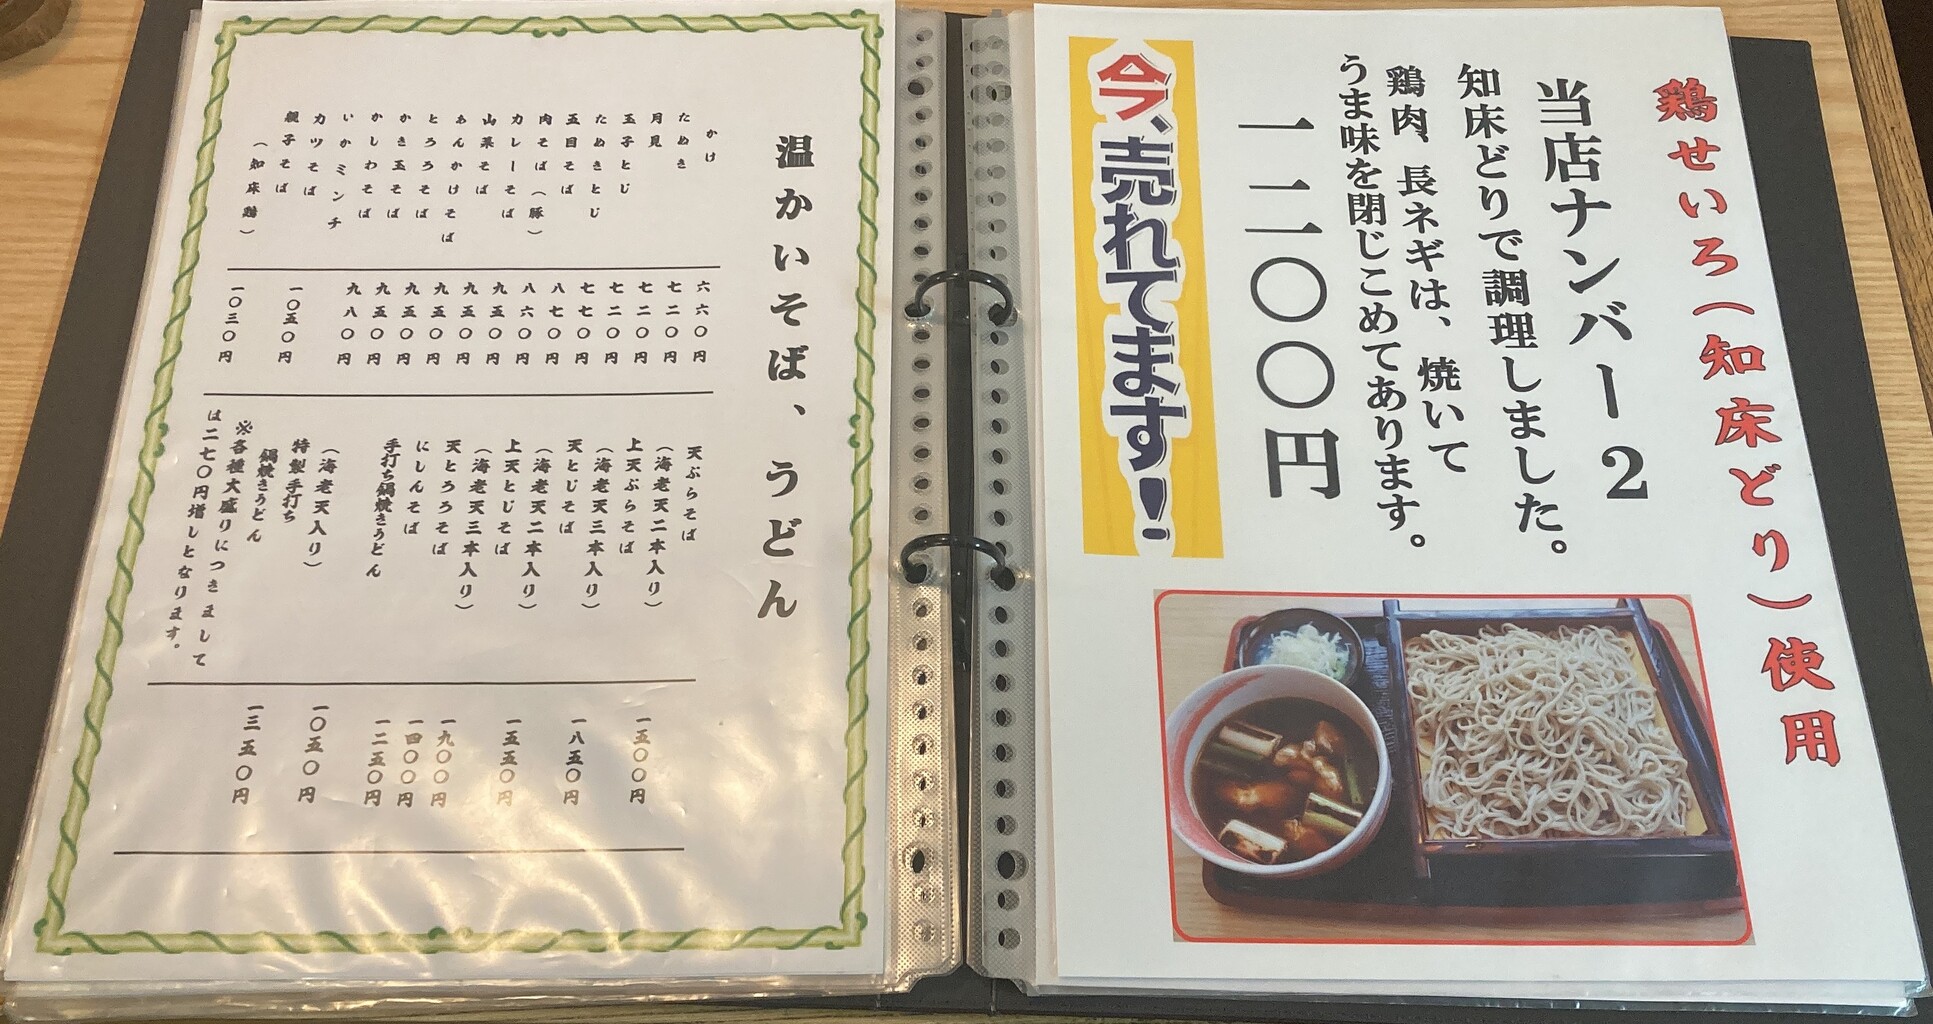 鶏せいろ（知床どり）使用
当店ナンバー2
知床どりで調理しました。
鶏肉、長ネギは、焼いて
うま味を閉じこめてあります。
一二〇〇円
今、売れてます！
温かいそば、うどん
かけ
たぬき
月見
玉子とじ
たぬきとじ
五目そば
肉そば（豚）
カレーそば
山菜そば
あんかけそば
とろろそば
かき玉そば
かしわそば
いかミンチ
カツそば
親子そば
（知床鶏）
六六〇円
七二〇円
七二〇円
七二〇円
七七〇円
八七〇円
八六〇円
九五〇円
九五〇円
九五〇円
九五〇円
九五〇円
九八〇円
一〇五〇円
一〇三〇円
天ぷらそば
（海老天二本入り）
上天ぷらそば
（海老天三本入り）
天とじそば
（海老天二本入り）
上天とじそば
（海老天三本入り）
天とろろそば
にしんそば
手打ち鍋焼きうどん
（海老天入り）
特製手打ち
鍋焼きうどん
※各種大盛りにつきまして
は二七〇円増しとなります。
一五〇〇円
一八五〇円
一五五〇円
一九〇〇円
一四〇〇円
一二五〇円
一〇五〇円
一三五〇円